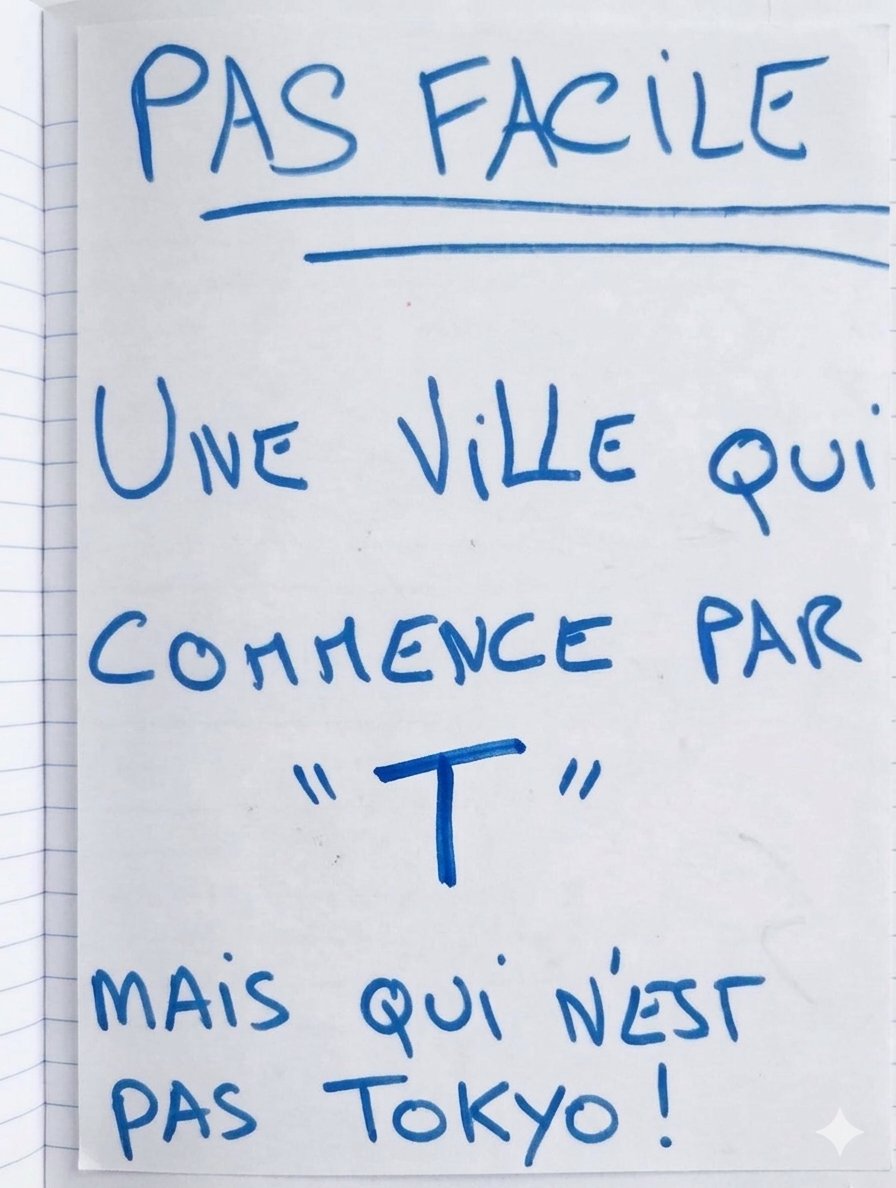 PAS FACiLE
UNE ViLLE QUi
COMMENCE PAR
"T"
MAiS QUi N'EST
PAS TOKYO !